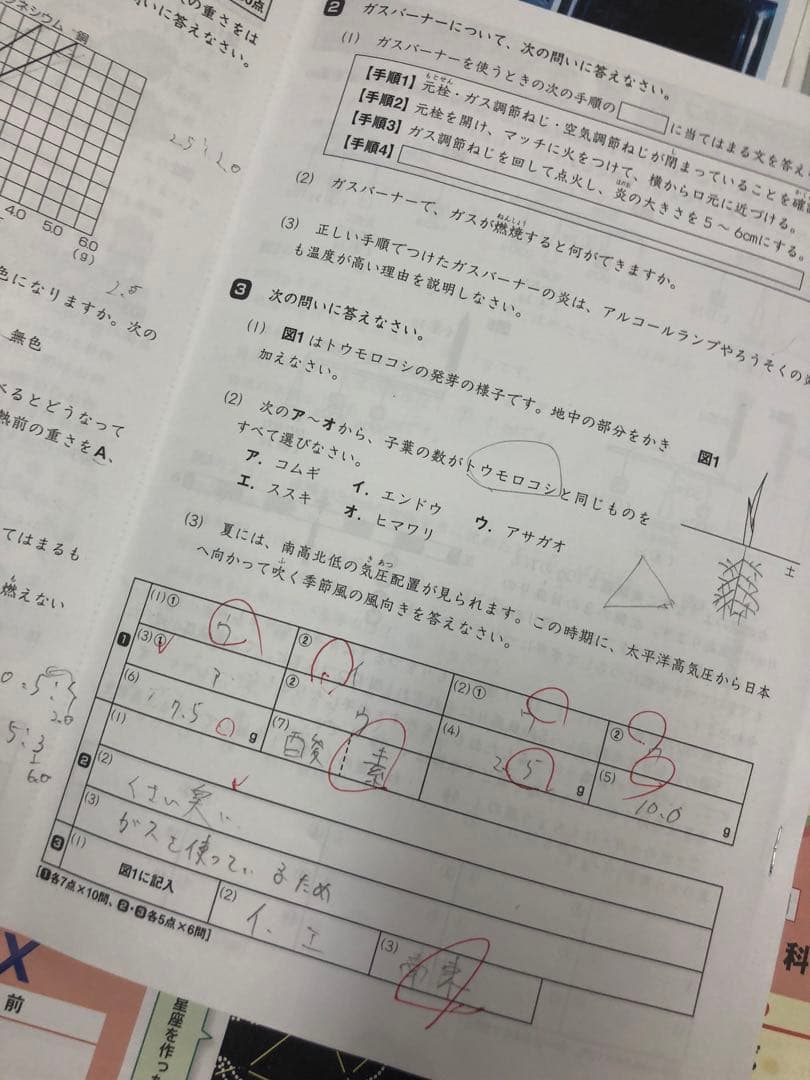 ネシウム 銅
の重さをは
いに答えなさい。
4.0 5.0 6.0
(g)
25:20
2.0
色になりますか。次の
無色
べるとどうなって
熱前の重さをA、
てはまるも
燃えない
5:3
6.0
2 ガスバーナーについて、次の問いに答えなさい。
(1) ガスバーナーを使うときの次の手順の　　に当てはまる文を答え
【手順1】元栓・ガス調節ねじ・空気調節ねじが閉まっていることを確
【手順2】元栓を開け、マッチに火をつけて、横から口元に近づける。
【手順3】ガス調節ねじを回して点火し、炎の大きさを5～6cmにする。
【手順4】
(2) ガスバーナーで、ガスが燃焼すると何ができますか。
(3) 正しい手順でつけたガスバーナーの炎は、アルコールランプやろうそくの炎
も温度が高い理由を説明しなさい。
3 次の問いに答えなさい。
(1) 図1はトウモロコシの発芽の様子です。地中の部分をかき
加えなさい。
(2) 次のア～オから、子葉の数がトウモロコシと同じものを
すべて選びなさい。
ア. コムギ イ. エンドウ ウ. アサガオ
エ. ススキ オ. ヒマワリ
図1
土
(3) 夏には、南高北低の気圧配置が見られます。この時期に、太平洋高気圧から日本
へ向かって吹く季節風の風向きを答えなさい。
1 (1)① ウ ② イ (2)① ②
(3)① ア ② ウ (4) 2.5 g (5) 10.0 g
(6) 7.5 g (7) 酸 素
2 (1)
(2) くさい臭に
(3) ガスを使っているため
3 (1) 図1に記入 (2) イ、エ (3) 南東
[1各7点×10問、2・3各5点×6問]
科
X
前
星座を作っ